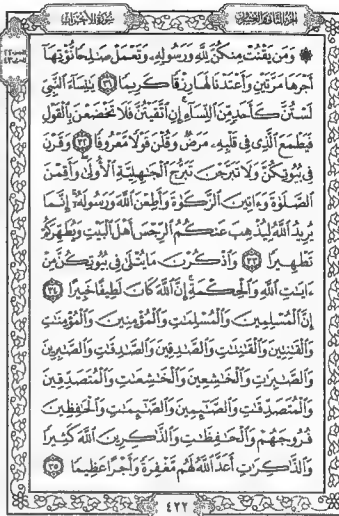 الجزء الثاني والعشرون
سورة الأحزاب
۞ وَمَن يَقْنُتْ مِنكُنَّ لِلَّهِ وَرَسُولِهِۦ وَتَعْمَلْ صَٰلِحًا نُّؤْتِهَآ
أَجْرَهَا مَرَّتَيْنِ وَأَعْتَدْنَا لَهَا رِزْقًا كَرِيمًا ٣١ يَٰنِسَآءَ ٱلنَّبِىِّ
لَسْتُنَّ كَأَحَدٍ مِّنَ ٱلنِّسَآءِ إِنِ ٱتَّقَيْتُنَّ فَلَا تَخْضَعْنَ بِٱلْقَوْلِ
فَيَطْمَعَ ٱلَّذِى فِى قَلْبِهِۦ مَرَضٌ وَقُلْنَ قَوْلًا مَّعْرُوفًا ٣٢ وَقَرْنَ
فِى بُيُوتِكُنَّ وَلَا تَبَرَّجْنَ تَبَرُّجَ ٱلْجَٰهِلِيَّةِ ٱلْأُولَىٰ وَأَقِمْنَ
ٱلصَّلَوٰةَ وَءَاتِينَ ٱلزَّكَوٰةَ وَأَطِعْنَ ٱللَّهَ وَرَسُولَهُۥٓ إِنَّمَا
يُرِيدُ ٱللَّهُ لِيُذْهِبَ عَنكُمُ ٱلرِّجْسَ أَهْلَ ٱلْبَيْتِ وَيُطَهِّرَكُمْ
تَطْهِيرًا ٣٣ وَٱذْكُرْنَ مَا يُتْلَىٰ فِى بُيُوتِكُنَّ مِنْ
ءَايَٰتِ ٱللَّهِ وَٱلْحِكْمَةِ إِنَّ ٱللَّهَ كَانَ لَطِيفًا خَبِيرًا ٣٤
إِنَّ ٱلْمُسْلِمِينَ وَٱلْمُسْلِمَٰتِ وَٱلْمُؤْمِنِينَ وَٱلْمُؤْمِنَٰتِ
وَٱلْقَٰنِتِينَ وَٱلْقَٰنِتَٰتِ وَٱلصَّٰدِقِينَ وَٱلصَّٰدِقَٰتِ وَٱلصَّٰبِرِينَ
وَٱلصَّٰبِرَٰتِ وَٱلْخَٰشِعِينَ وَٱلْخَٰشِعَٰتِ وَٱلْمُتَصَدِّقِينَ
وَٱلْمُتَصَدِّقَٰتِ وَٱلصَّٰٓئِمِينَ وَٱلصَّٰٓئِمَٰتِ وَٱلْحَٰفِظِينَ
فُرُوجَهُمْ وَٱلْحَٰفِظَٰتِ وَٱلذَّٰكِرِينَ ٱللَّهَ كَثِيرًا
وَٱلذَّٰكِرَٰتِ أَعَدَّ ٱللَّهُ لَهُم مَّغْفِرَةً وَأَجْرًا عَظِيمًا ٣٥
٤٢٢